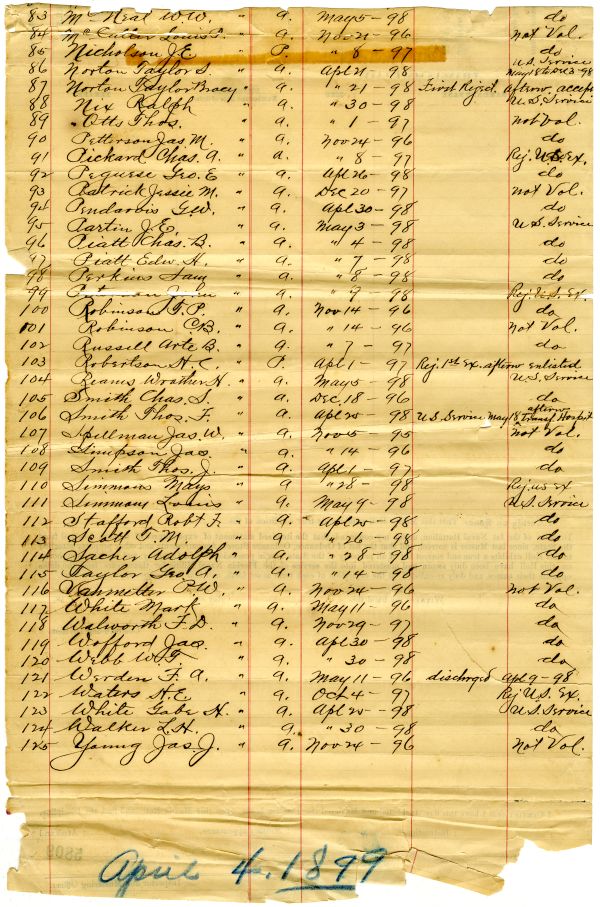 83 McNeal W.W. " a. May 5 - 98 do
84 McCutter Louis P. " a. Nov 21 - 96 not Vol.
85 Nicholson J.E. " P. " 8 - 97 do
86 Norton Taylor S. " a. Apl 21 - 98 U.S. Service May 18 to Dec 3-98
87 Norton Taylor Tracy " a. " 21 - 98 First Reject. afterw. accept
88 Nix Ralph " a. " 30 - 98 U.S. Service
89 Otts Thos. " a. " 1 - 97 not Vol.
90 Petterson Jas M. " a. Nov 24 - 96 do
91 Pickard Chas. A. " a. " 8 - 97 Rej. U.S. Ex.
92 Peguese Geo. E " a. Apl 26 - 98 do
93 Patrick Jessie M. " a. Dec 20 - 97 not Vol.
94 Pendarvis G.W. " a. Apl 30 - 98 do
95 Partin J.E. " a. May 3 - 98 U.S. Service
96 Piatt Chas. B. " a. " 4 - 98 do
97 Piatt Edw. H. " a. " 7 - 98 do
98 Perkins Sam " a. " 8 - 98 do
99 Peterson John " a. " 9 - 98 Rej. U.S. Ex.
100 Robinson T.P. " a. Nov 14 - 96 do
101 Robinson C.B. " a. " 14 - 96 not Vol.
102 Russell Arte B. " a. " 7 - 97 do
103 Robertson H.C. " P. Apl 1 - 97 Rej. 1st Ex. afterw enlisted
104 Reams Wrather H. " a. May 5 - 98 U.S. Service
105 Smith Chas. S. " a. Dec. 18 - 96 do
106 Smith Thos. F. " a. Apl 25 - 98 U.S. Service May 18 afterw Transf. Hospit
107 Spillman Jas. W. " a. Nov 5 - 95 not Vol.
108 Simpson Jas. " a. " 14 - 96 do
109 Smith Thos. J. " a. Apl 1 - 97 do
110 Simmons Mays " a. " 28 - 98 Rej. U.S. Ex
111 Simmons Louis " a. May 9 - 98 U.S. Service
112 Stafford Robt F. " a. Apl 25 - 98 do
113 Scott T.M. " a. " 26 - 98 do
114 Sacher Adolph " a. " 28 - 98 do
115 Taylor Geo. A. " a. " 14 - 98 do
116 Vanmetter P.W. " a. Nov 24 - 96 not Vol.
117 White Mark " a. May 11 - 96 do
118 Walworth F.D. " a. Nov 29 - 97 do
119 Wofford Jas. " a. Apl 30 - 98 do
120 Webb W.T. " a. " 30 - 98 do
121 Werden F.A. " a. May 11 - 96 discharged Apl 9 - 98
122 Waters H.E. " a. Oct 4 - 97 Rej U.S. Ex.
123 White Gabe H. " a. Apl 25 - 98 U.S. Service
124 Walker L.H. " a. " 30 - 98 do
125 Young Jas. J. " a. Nov 24 - 96 not Vol.
April 4. 1899